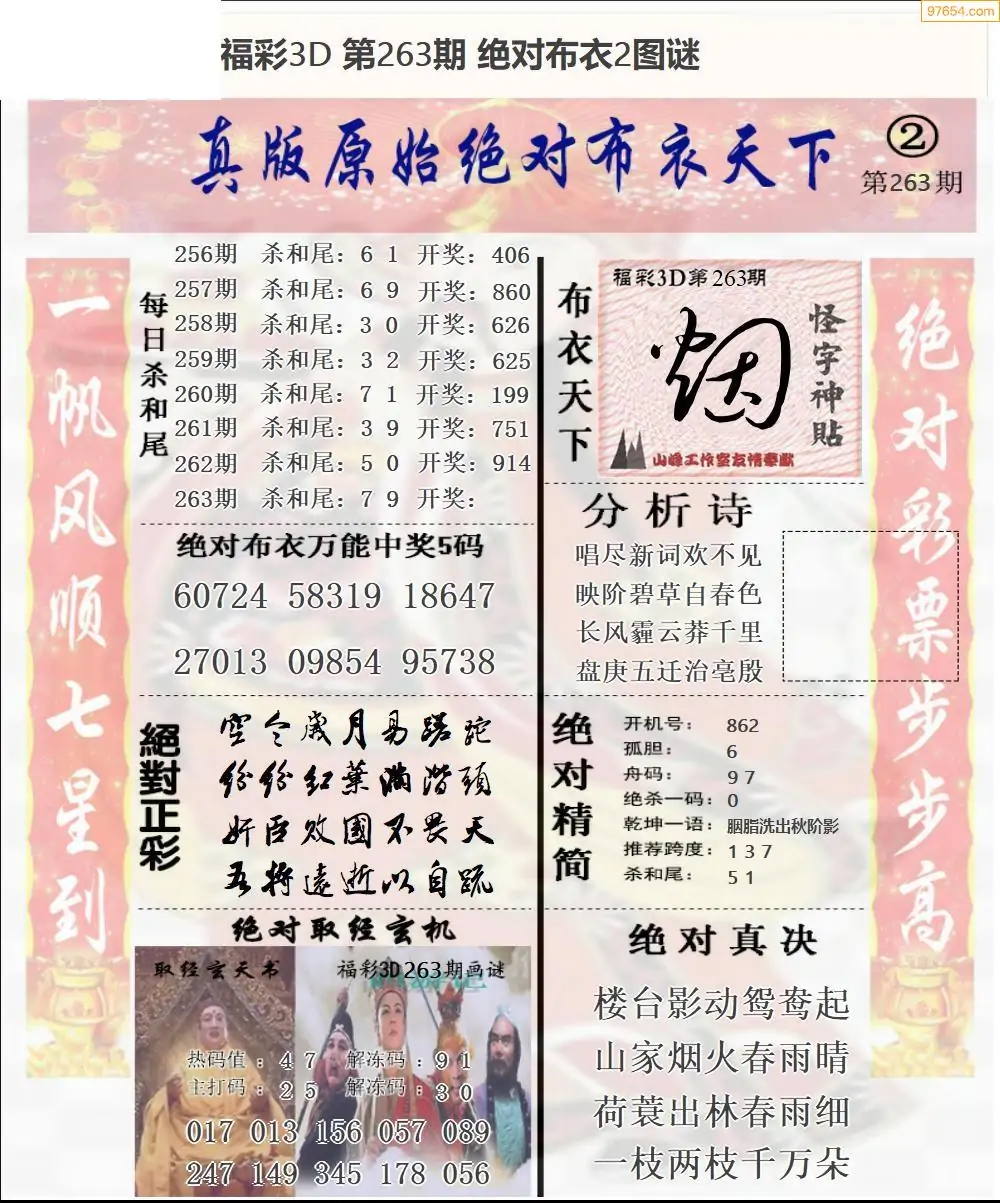 97654.com
福彩3D 第263期 绝对布衣2图谜
真版原始绝对布衣天下
②
第263期
一帆风顺七星到
每日杀和尾
256期 杀和尾：6 1 开奖：406
257期 杀和尾：6 9 开奖：860
258期 杀和尾：3 0 开奖：626
259期 杀和尾：3 2 开奖：625
260期 杀和尾：7 1 开奖：199
261期 杀和尾：3 9 开奖：751
262期 杀和尾：5 0 开奖：914
263期 杀和尾：7 9 开奖：
绝对布衣万能中奖5码
60724 58319 18647
27013 09854 95738
絕對正彩
空令歲月易蹉跎
紛紛红葉滿階頭
奸臣败國不畏天
吾將遠逝以自疏
绝对取经玄机
取经玄天书
福彩3D263期画谜
热码值：4 7 解冻码：9 1
主打码：2 5 解冻码：3 0
017 013 156 057 089
247 149 345 178 056
布衣天下
福彩3D第263期
烟
怪字神貼
山峰工作室友情奉献
分析诗
唱尽新词欢不见
映阶碧草自春色
长风霾云莽千里
盘庚五迁治亳殷
绝对精简
开机号： 862
孤胆： 6
舟码： 9 7
绝杀一码：0
乾坤一语：胭脂洗出秋阶影
推荐跨度：1 3 7
杀和尾： 5 1
绝对真决
楼台影动鸳鸯起
山家烟火春雨晴
荷蓑出林春雨细
一枝两枝千万朵
绝对彩票步步高